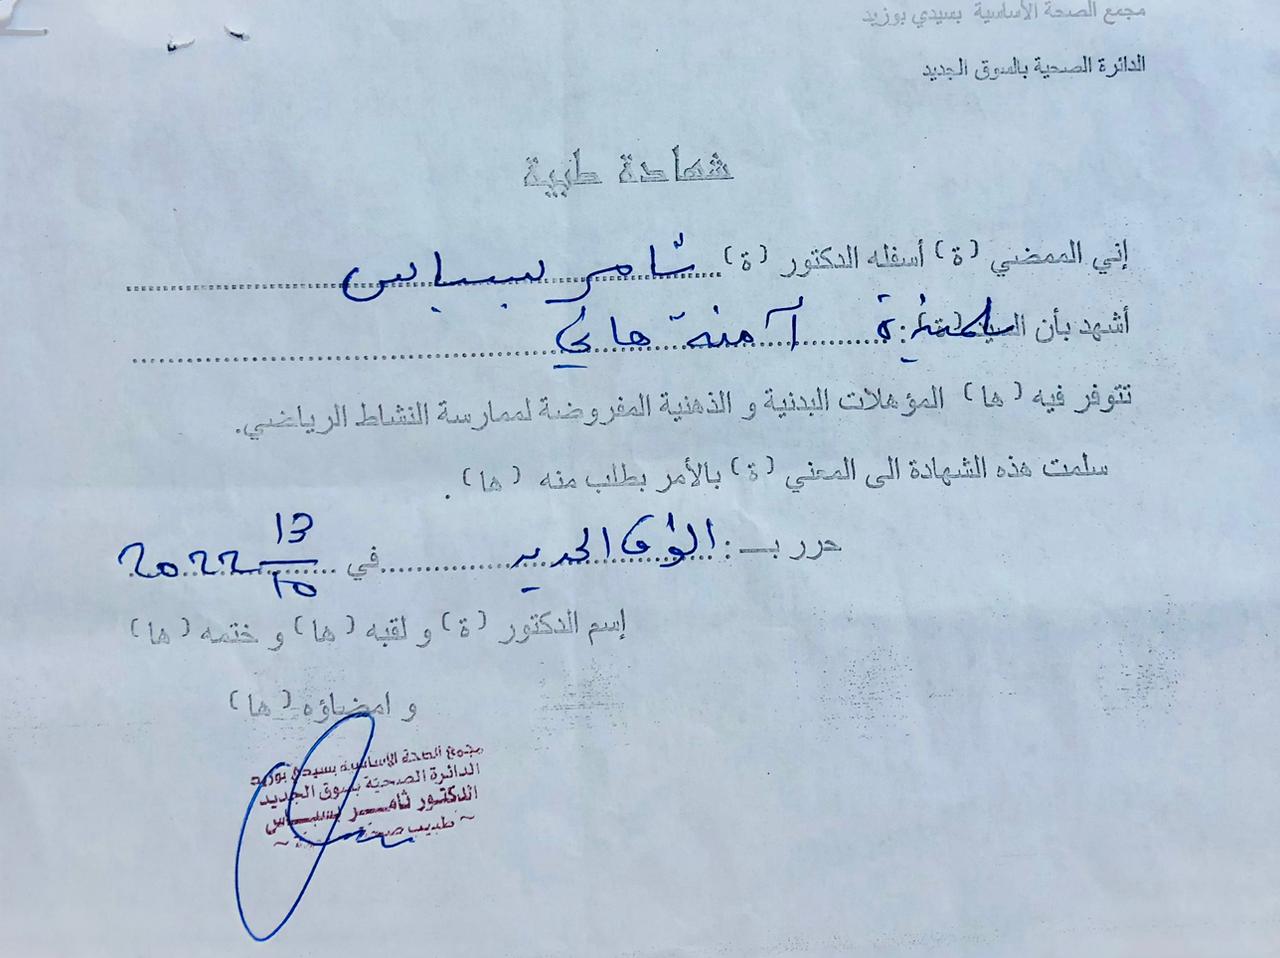 مجمع الصحة الأساسية بسيدي بوزيد
الدائرة الصحية بالسوق الجديد
شهادة طبية
إني الممضي (ة) أسفله الدكتور (ة) ثامر بسباس
أشهد بأن آمنة هاني
تتوفر فيه (ها) المؤهلات البدنية و الذهنية المفروضة لممارسة النشاط الرياضي.
سلمت هذه الشهادة الى المعني (ة) بالأمر بطلب منه (ها) .
حرر بـ: السوق الجديد في 13/10 2022
إسم الدكتور (ة) و لقبه (ها) و ختمه (ها)
و امضاؤه (ها)
مجمع الصحة الأساسية بسيدي بوزيد
الدائرة الصحية بسوق الجديد
الدكتور ثامر بسباس
~ طبيب